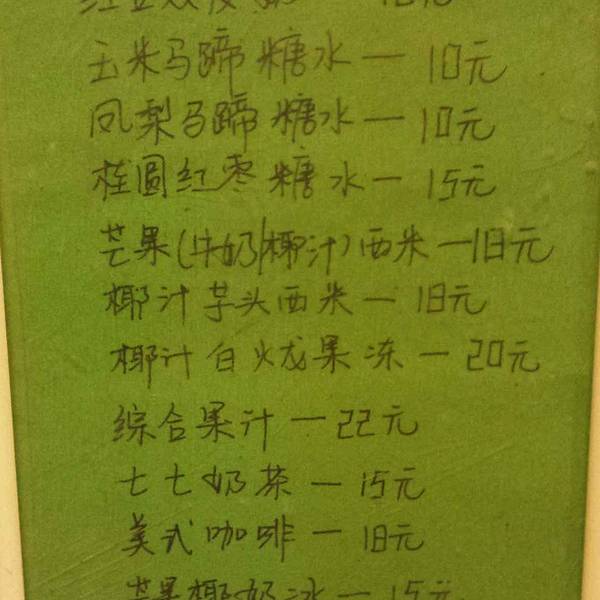 红豆双皮奶
玉米马蹄糖水 — 10元
凤梨马蹄糖水 — 10元
桂圆红枣糖水 — 15元
芒果(牛奶/椰汁)西米 — 18元
椰汁芋头西米 — 18元
椰汁白火龙果冻 — 20元
综合果汁 — 22元
七七奶茶 — 15元
美式咖啡 — 18元
芒果椰奶冰 — 15元